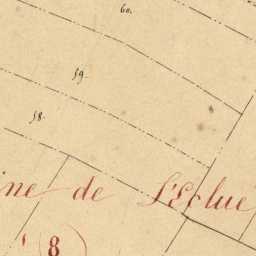 60.
59.
58.
ine de L'Eclue
8